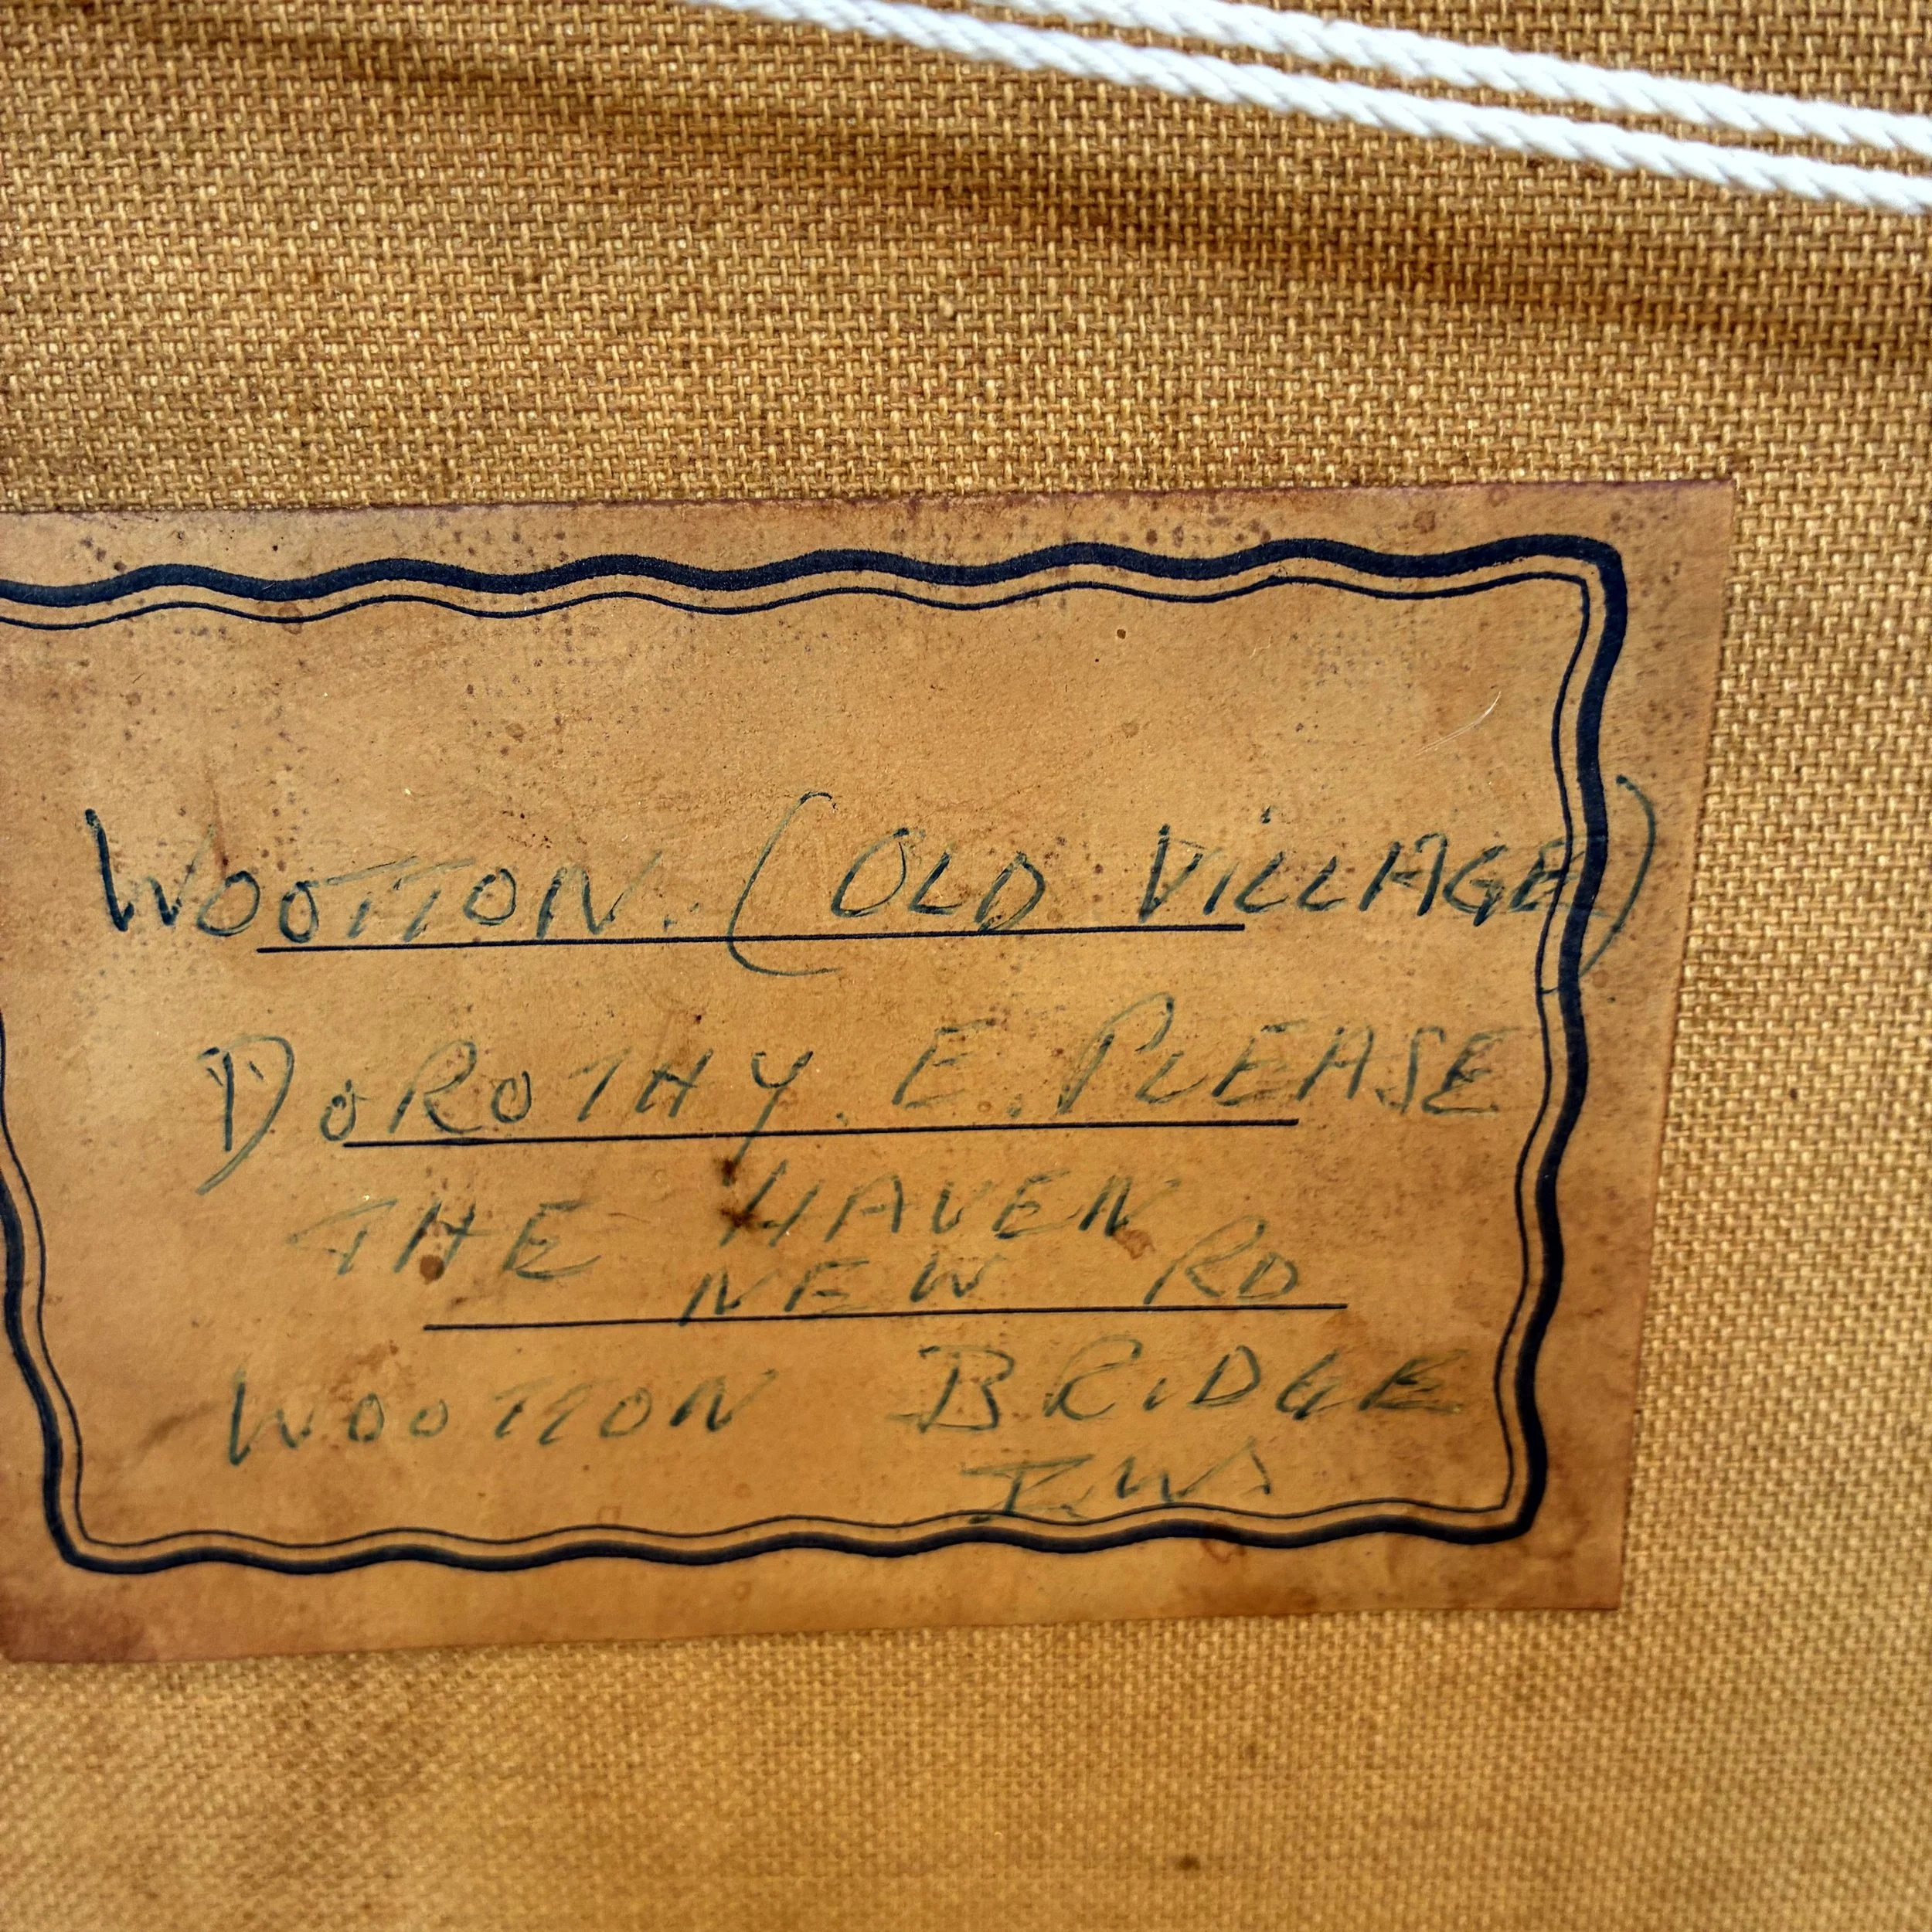 WOOTTON. (OLD VILLAGE)
DOROTHY. E. PLEASE
THE HAVEN
NEW RD
WOOTTON BRIDGE
IW